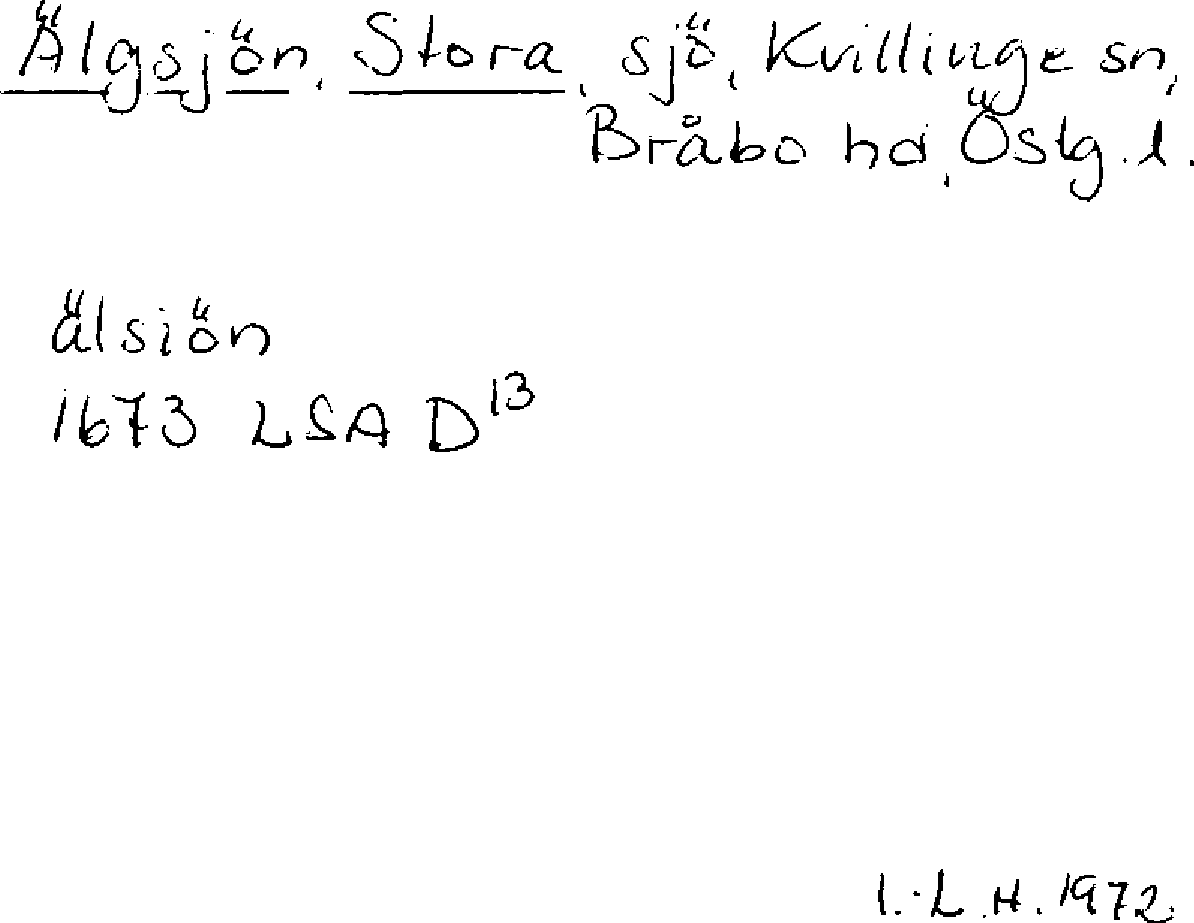 Älgsjön, Stora, sjö, Kvillinge sn,
Bråbo hd, Östg. l.
älsiön
1673 LSA D13
I.-L. H. 1972.